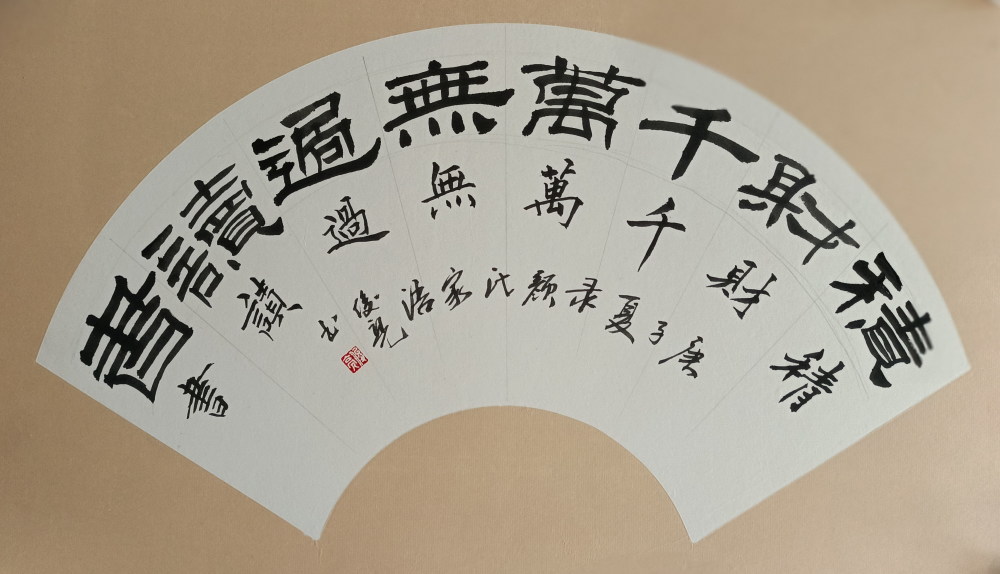 積財千萬無過讀書
積財千萬無過讀書
庚子夏录颜氏家浩俊亮书